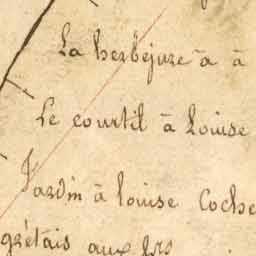 La herbejure à à
Le courtil à Louise
Jardin à louise Coche
grétais aux